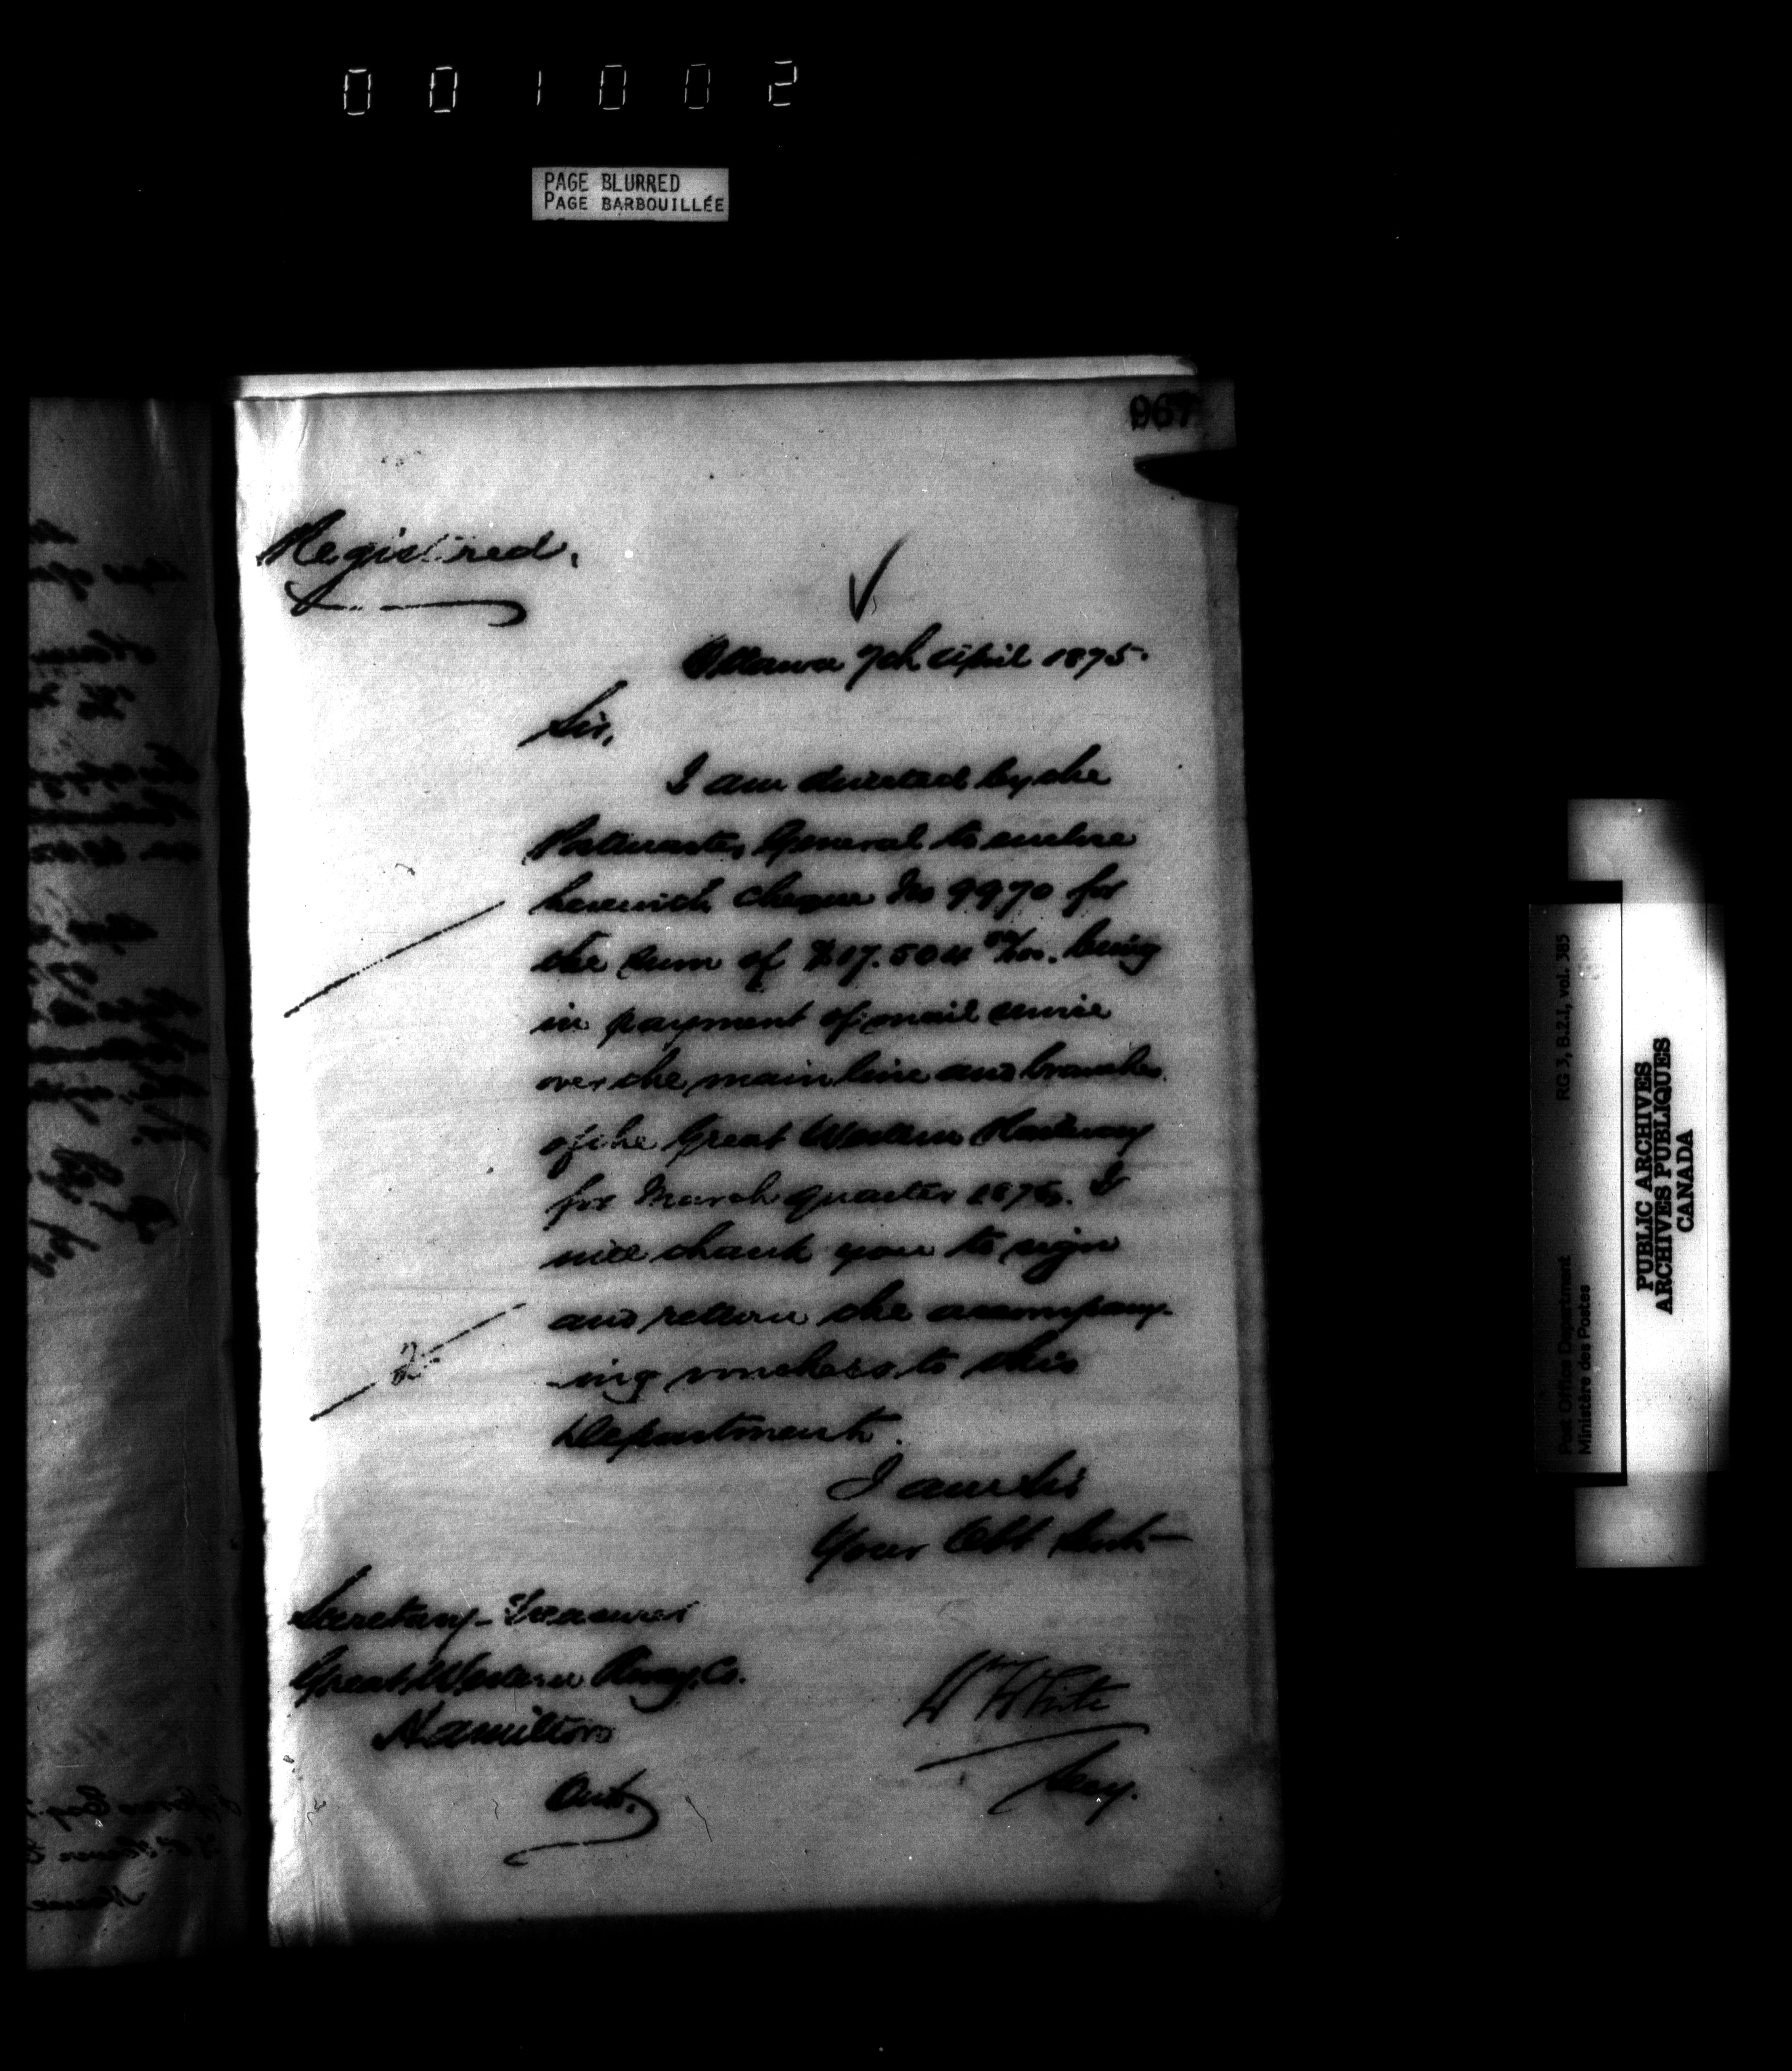 001002
PAGE BLURRED
PAGE BARBOUILLÉE
967
Registered.
Ottawa 7th April 1875.
Sir,
I am directed by the
Postmaster General to enclose
herewith cheque No 9970 for
the sum of $17.504 being
in payment of mail service
over the main line and branches
of the Great Western Railway
for March quarter 1875. I
will thank you to sign
and return the accompany-
ing vouchers to this
Department.
I am Sir
Your Obt Servt
Secretary-Treasurer
Great Western Rway. Co.
Hamilton
Ont.
W White
Secy.
RG 3, B.2.1, vol. 385
Post Office Department
Ministère des Postes
PUBLIC ARCHIVES
ARCHIVES PUBLIQUES
CANADA